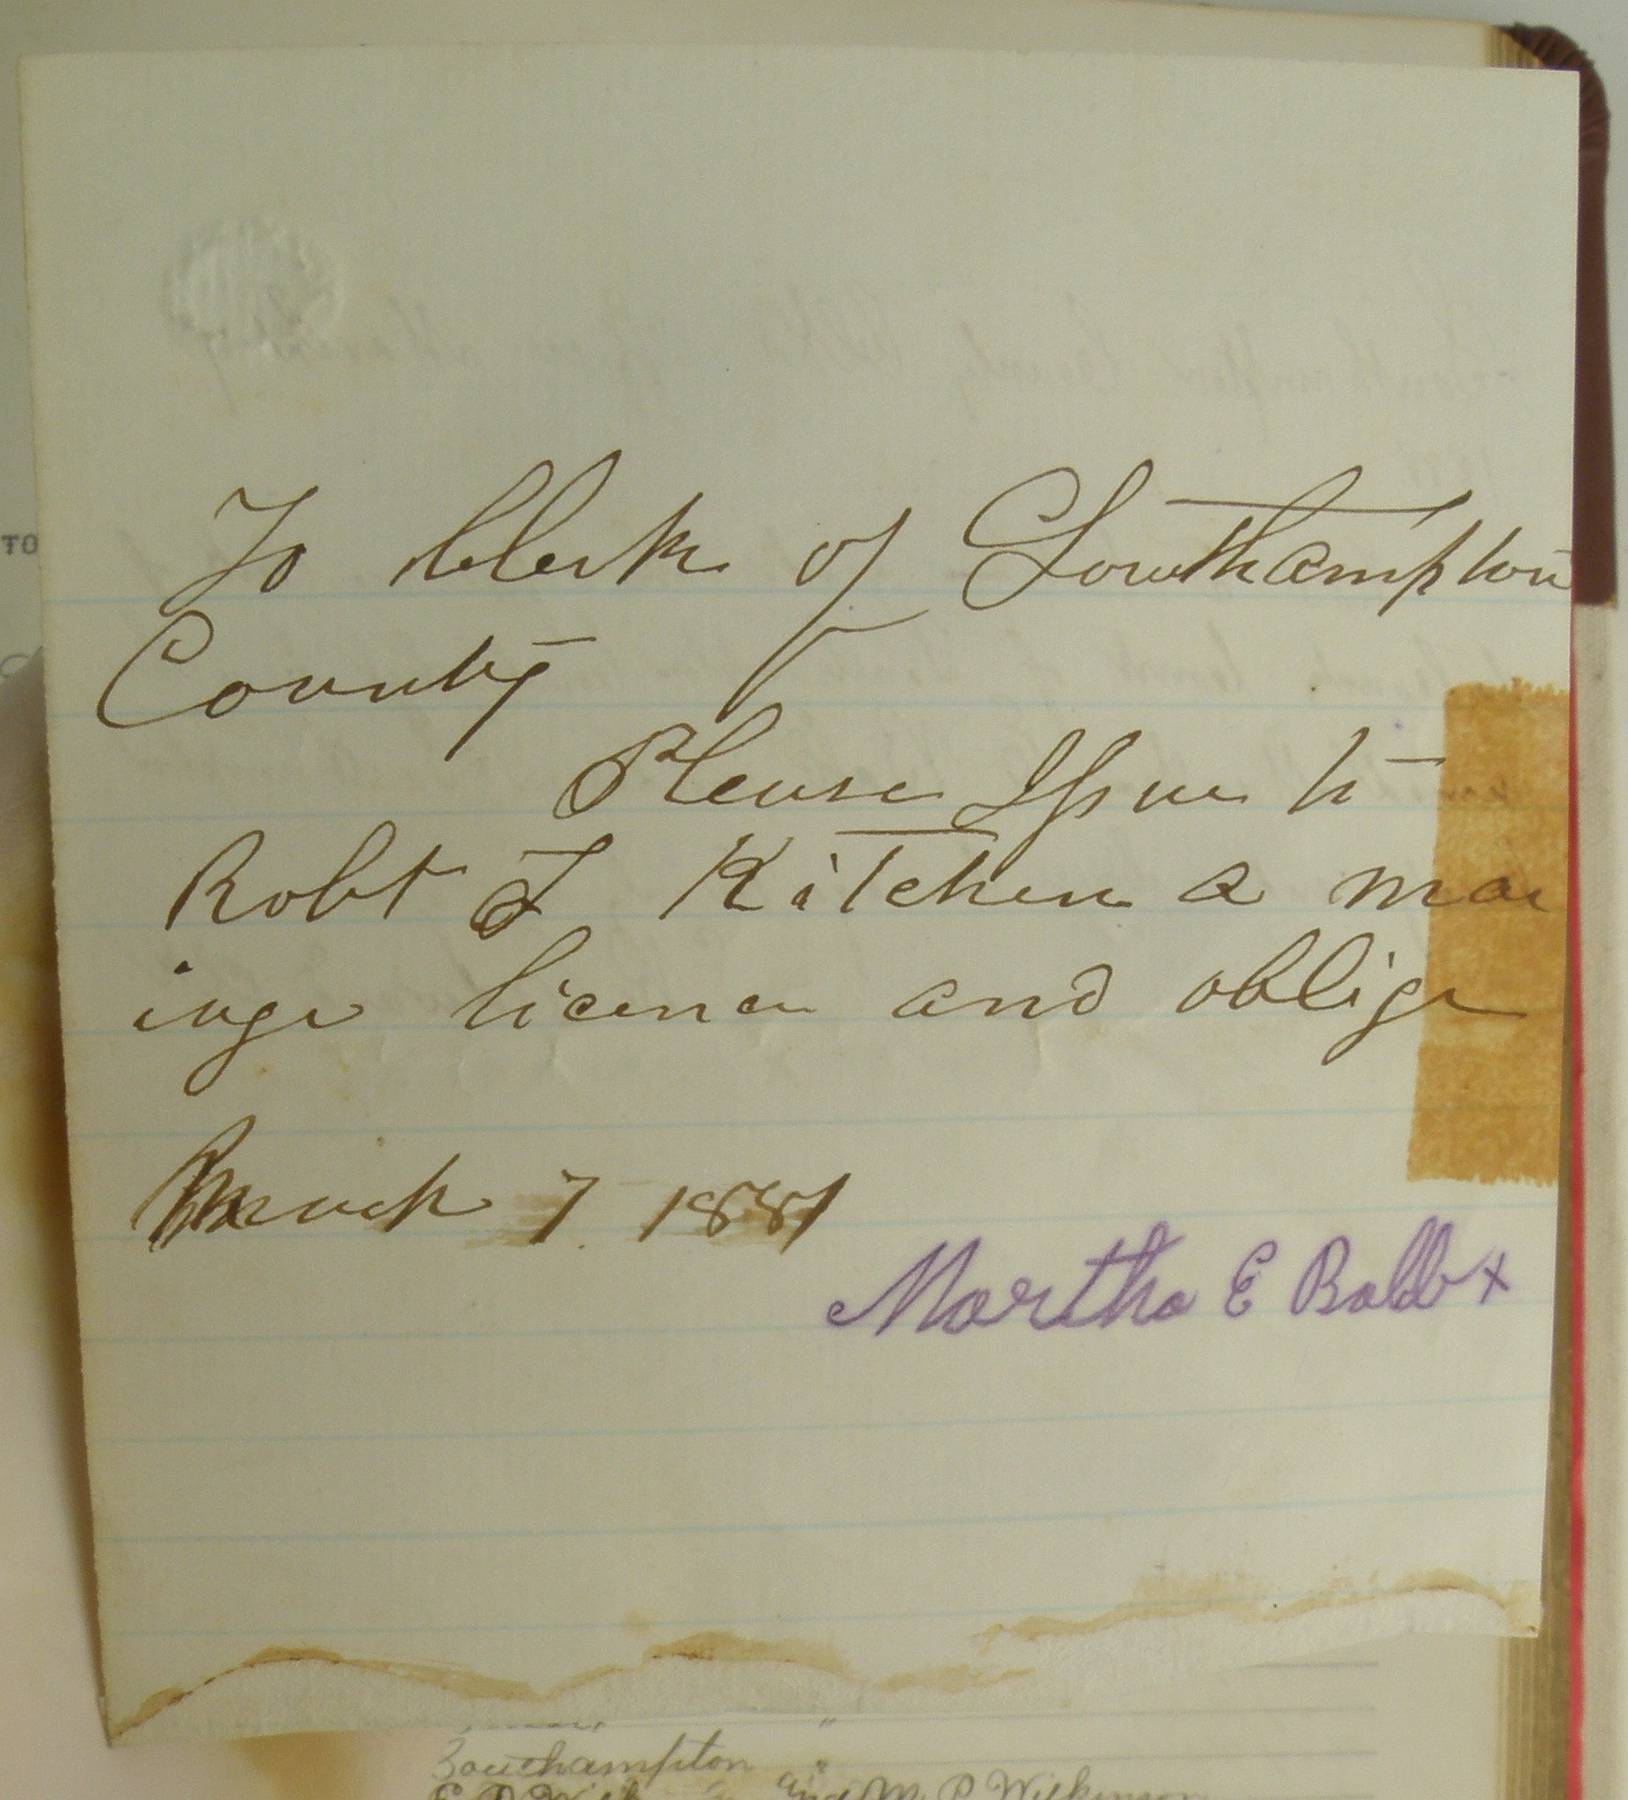 TO
To Clerk of Southampton
County
Please Issue to
Robt T Kitchen a mar
iage licence and oblige
March 7 1881
Martha E Babb x
Southampton "
and M. P. Wilkinson